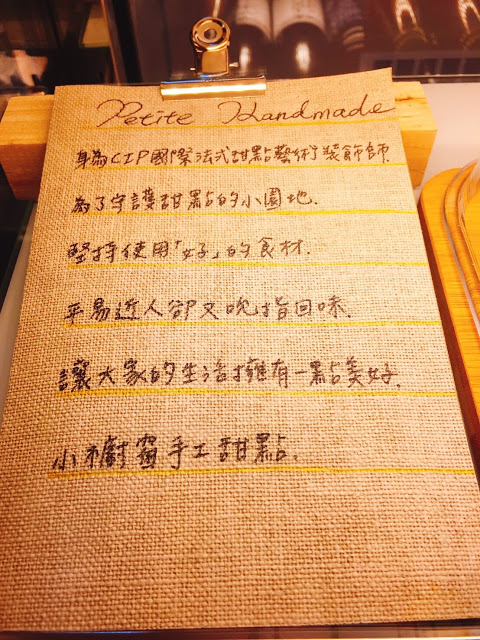 Petite Handmade
身為CIP國際法式甜點藝術裝飾師.
為了守護甜點的小園地.
堅持使用「好」的食材.
平易近人卻又吮指回味.
讓大家的生活擁有一點美好.
小櫥窗手工甜點.